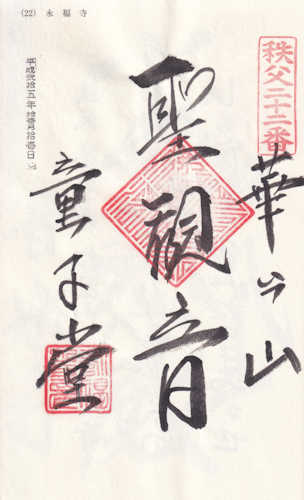 (22) 永福寺
秩父二十二番
華台山
聖観音
童子堂
平成弐拾五年 拾壱月拾壱日